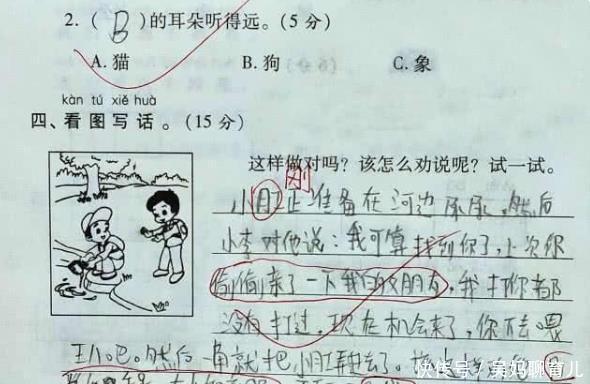 2.(B)的耳朵听得远。(5分)
A.猫 B.狗 C.象
kàn tú xiě huà
四、看图写话。(15分)
这样做对吗?该怎么劝说呢?试一试。
刚
小正准备在河边尿尿,然后
小李对他说:我可算找到你了,上次你
偷偷亲了一下我的女朋友,我打你都
没有打过,现在机会来了,你去喂
吧。然后一角就把小
快传号/吴妈聊育儿